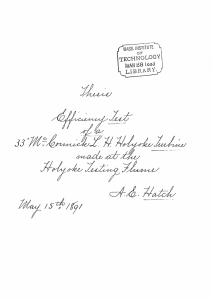 MASS. INSTITUTE
OF
TECHNOLOGY
MAR 28 1892
LIBRARY.
Thesis
Efficiency Test
of a
33" McCormick L. H. Holyoke Turbine
made at the
Holyoke Testing Flume
A. E. Hatch
May 15th 1891